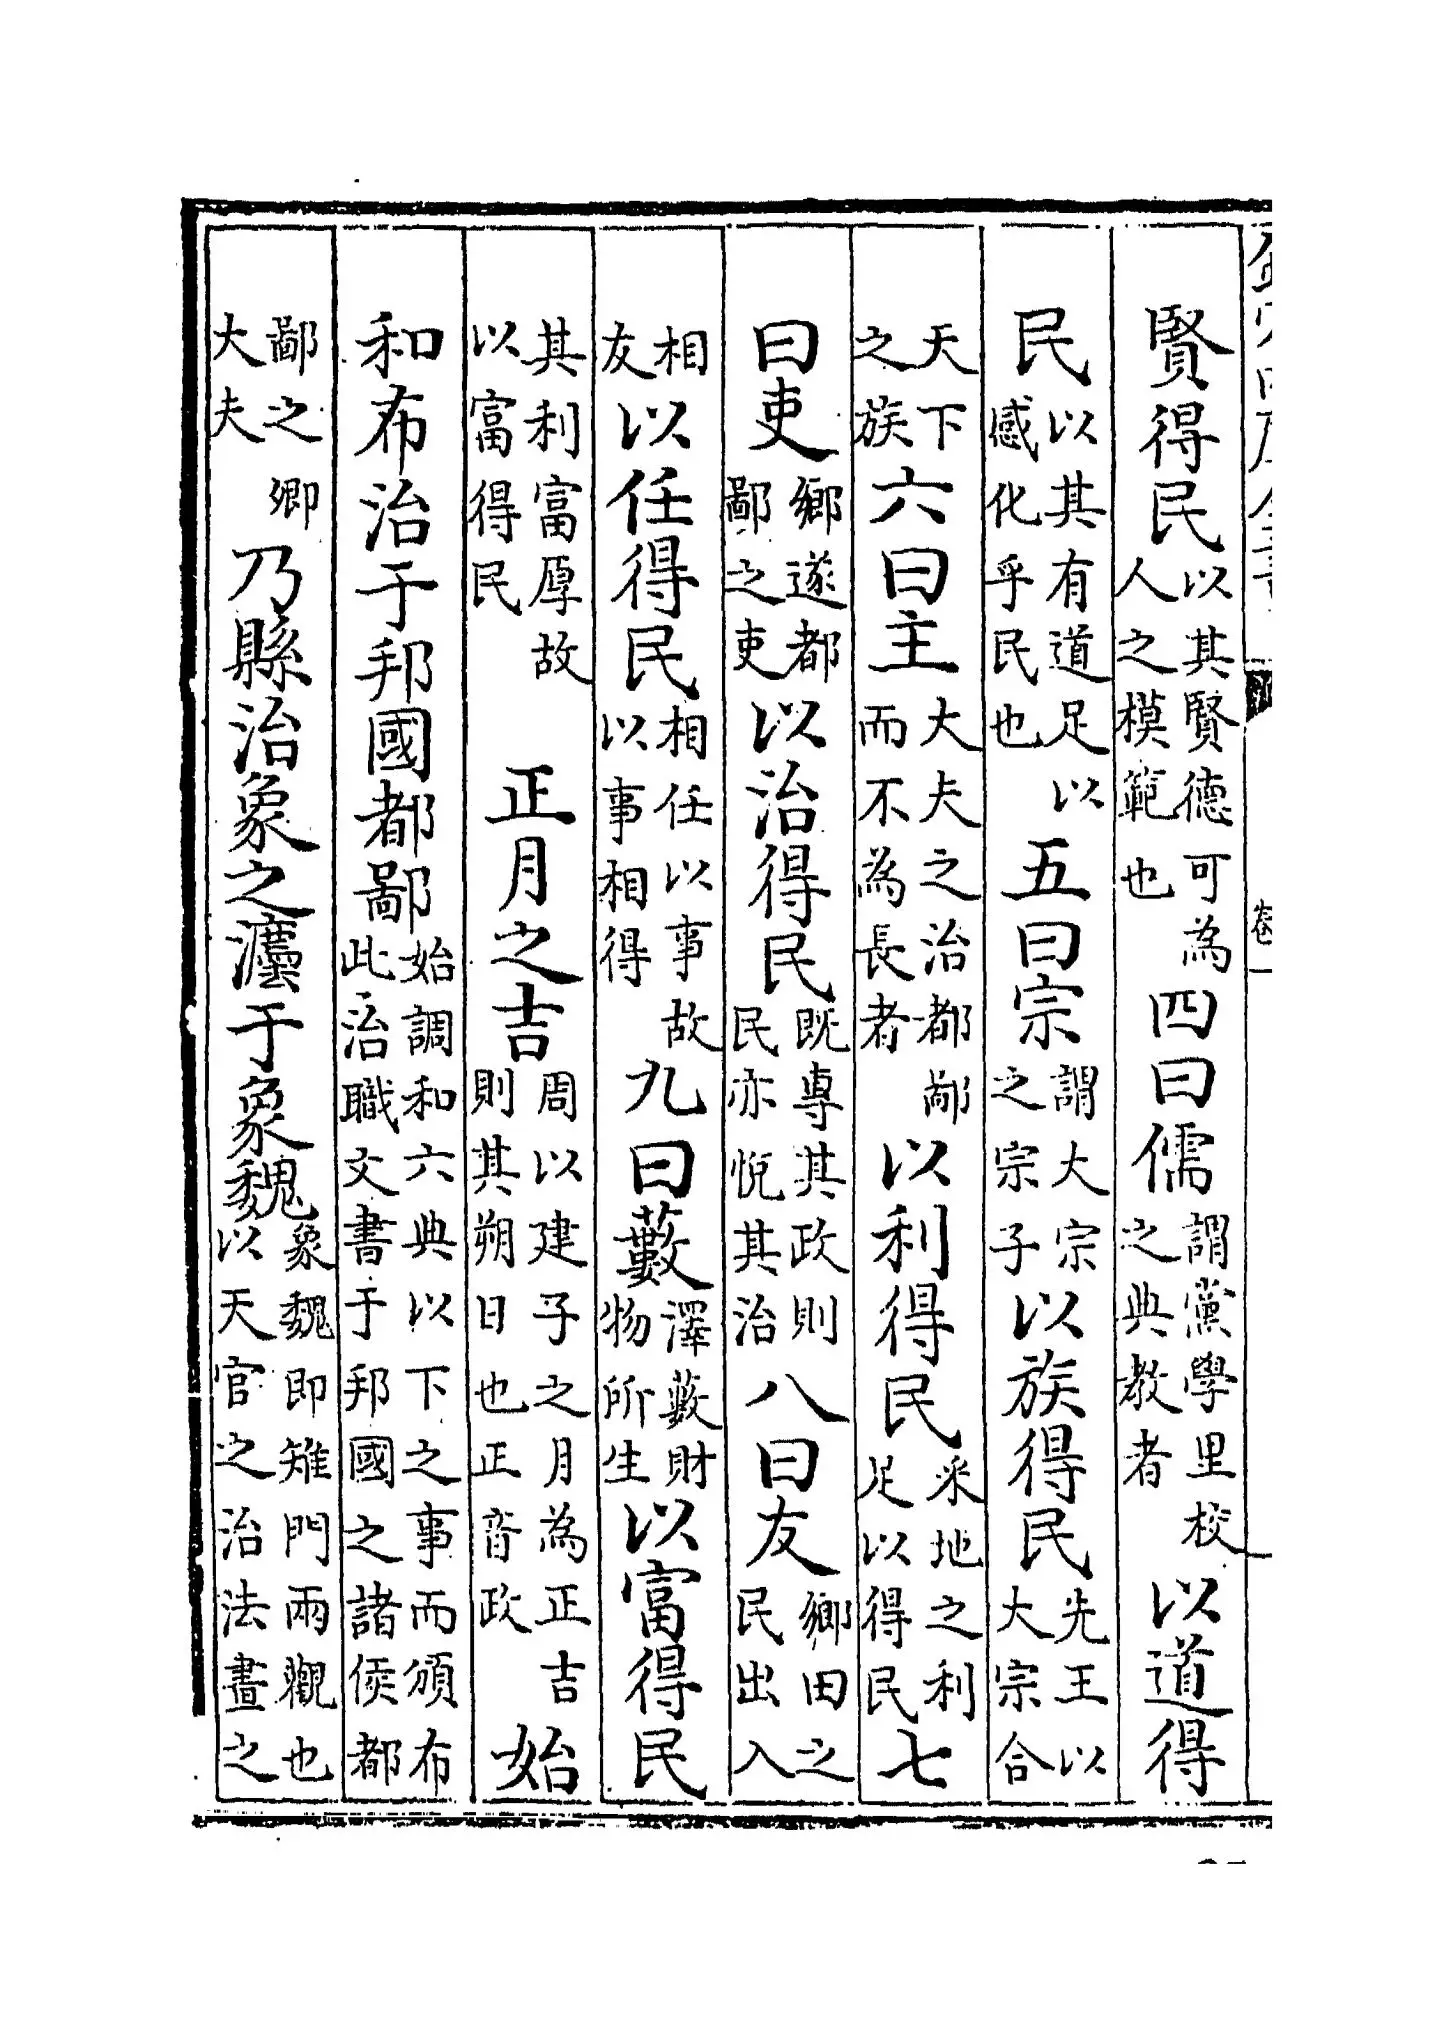 賢得民以其賢德可為人之模範也四曰儒謂黨學里校之典教者以道得
民以其有道足以感化乎民也五曰宗謂大宗之宗子以族得民先王以大宗合
天下之族六曰主大夫之治都鄙而不為長者以利得民采地之利足以得民七
曰吏鄉遂都鄙之吏以治得民既專其政則民亦悅其治八曰友鄉田之民出入
相友以任得民相任以事故以事相得九曰藪澤藪財物所生以富得民
其利富厚故以富得民正月之吉周以建子之月為正吉則其朔日也正音政始
和布治于邦國都鄙始調和六典以下之事而頒布此治職文書于邦國之諸侯都
鄙之卿大夫乃縣治象之灋于象魏象魏即雉門兩觀也以天官之治法畫之